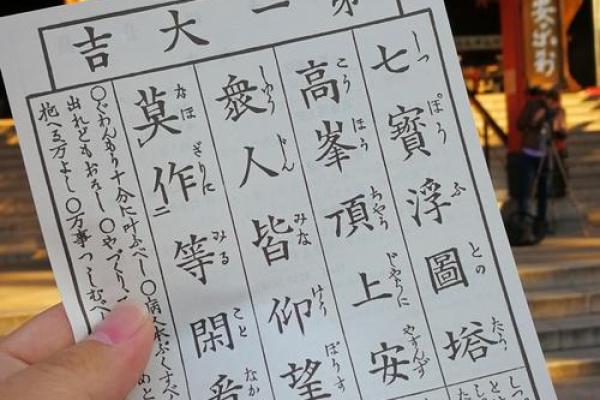 第一大吉
七寶浮圖塔
しつ ぽう ふ との たう
高峯頂上安
こう ほう ちやう じやうに やすんず
衆人皆仰望
しゆう じん みな げう ぼりす
莫作等閑看
なほ ざりに みる こと なか
〇ぐわんもう十分に叶ふべし〇病人本ぷくすべ
出れどもおそし〇やづくり
抱へる万よし〇万事つゝしむべ